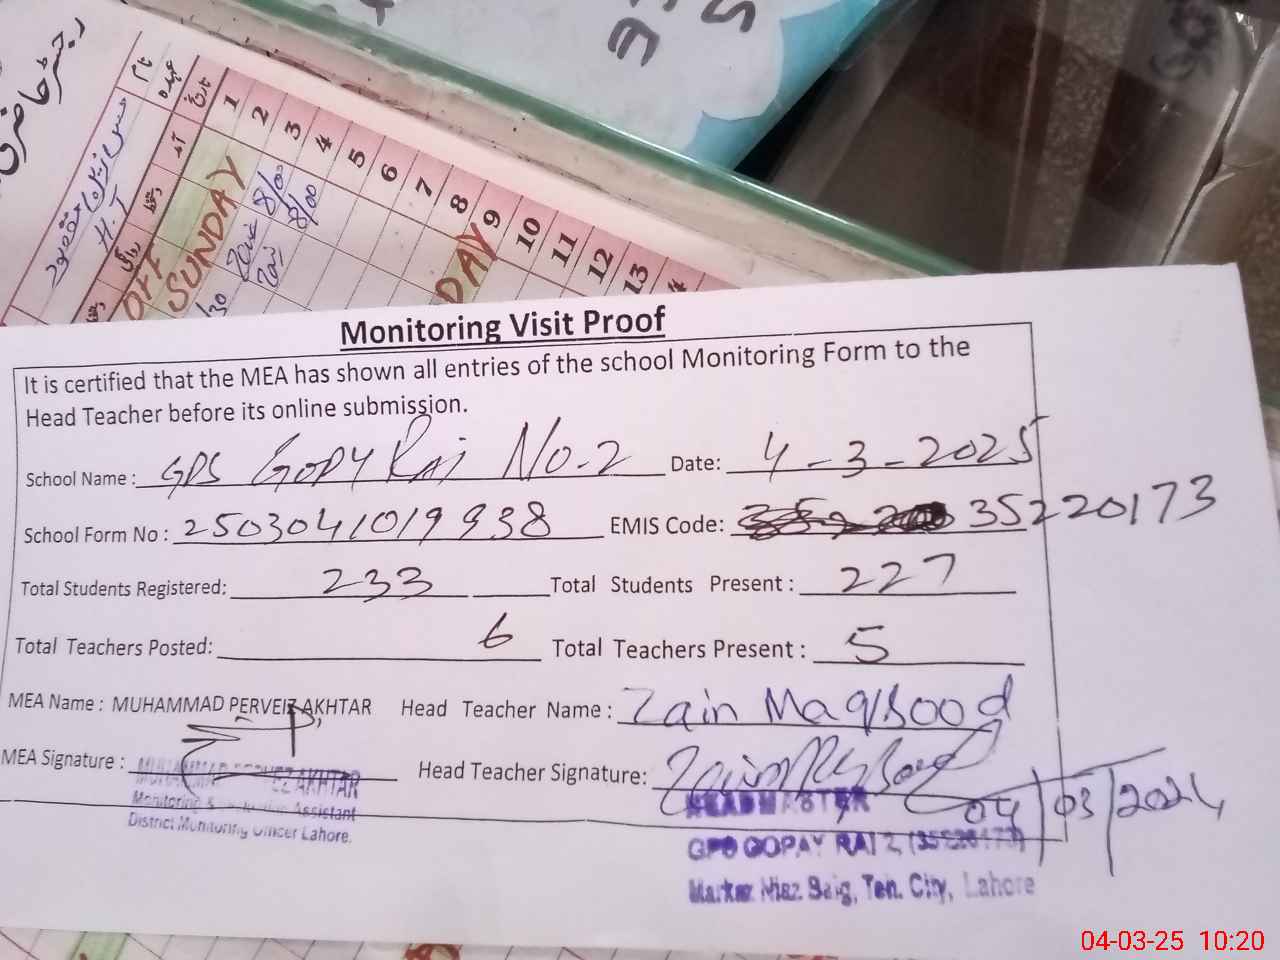 رجسٹر حاضری
نام
عہدہ
تاریخ
H.T
آمد
دستخط
روانگی
دستخط
1 2 3 4 5 6 7 8 9 10 11 12 13
OFF
SUNDAY
8/00
8/00
DAY
Monitoring Visit Proof
It is certified that the MEA has shown all entries of the school Monitoring Form to the
Head Teacher before its online submission.
School Name : GPS GOPY RAI No-2 Date: 4-3-2025
School Form No : 2503041019938 EMIS Code: 35220173
Total Students Registered: 233 Total Students Present : 227
Total Teachers Posted: 6 Total Teachers Present : 5
MEA Name : MUHAMMAD PERVEIZ AKHTAR Head Teacher Name : Zain Maqsood
MEA Signature : Head Teacher Signature: Zain Maqsood
04/03/2024
MUHAMMAD PERVEZ AKHTAR
Monitoring & Evaluation Assistant
District Monitoring Officer Lahore.
HEADMASTER
GPS GOPAY RAI 2, (35220173)
Markaz Niaz Baig, Teh. City, Lahore
04-03-25 10:20